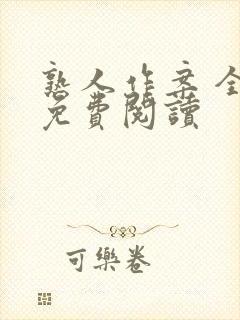 熟人作案全
免費閱讀
可樂卷